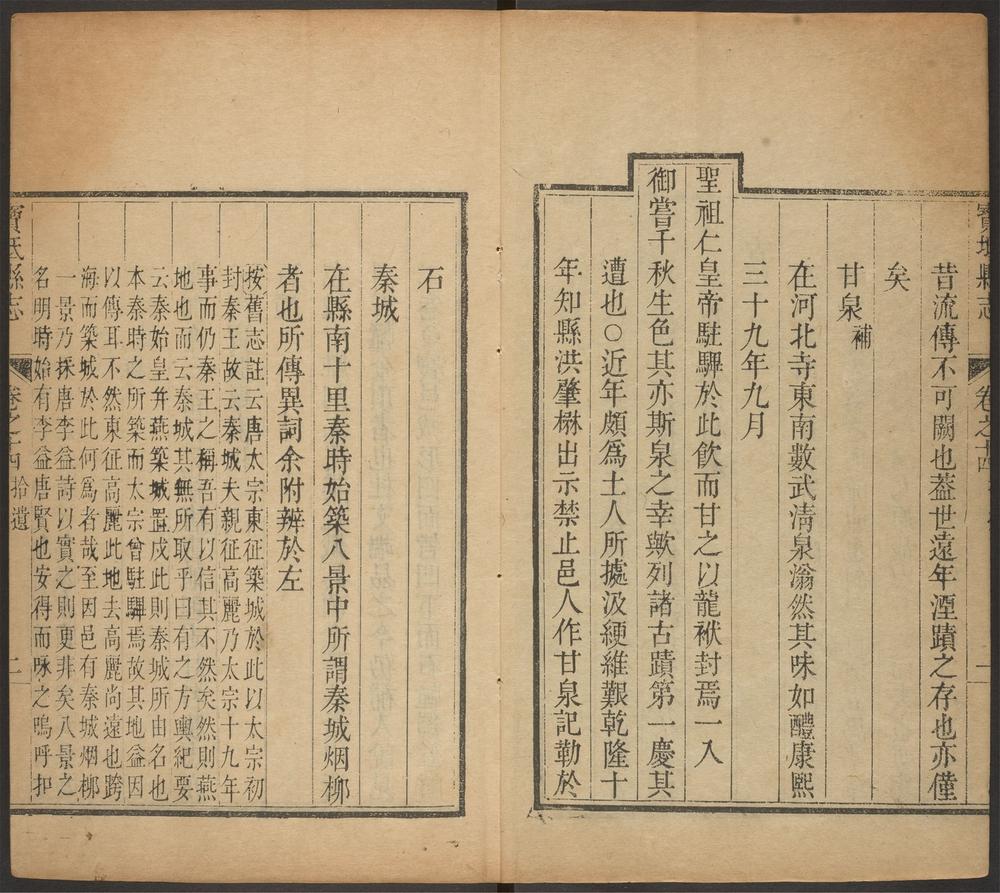 昔流傳不可闕也蓋世遠年湮蹟之存也亦僅
矣
甘泉補
在河北寺東南數武淸泉滃然其味如醴康熙
三十九年九月
聖祖仁皇帝駐驆於此飲而甘之以龍袱封焉一入
御嘗千秋生色其亦斯泉之幸歟列諸古蹟第一慶其
遭也○近年頗爲土人所擄汲綆維艱乾隆十
年知縣洪肇楙出示禁止邑人作甘泉記勒於
石
秦城
在縣南十里秦時始築八景中所謂秦城烟柳
者也所傳異詞余附辨於左
按舊志註云唐太宗東征築城於此以太宗初
封秦王故云秦城夫親征高麗乃太宗十九年
事而仍秦王之稱吾有以信其不然矣然則燕
地也而云秦城其無所取乎曰有之方輿紀要
云秦始皇幷燕築城置戍此則秦城所由名也
本秦時之所築而太宗曾駐驆焉故其地益因
以傳耳不然東征高麗此地去高麗尚遠也跨
海而築城於此何爲者哉至因邑有秦城烟柳
一景乃採唐李益詩以實之則更非矣八景之
名明時始有李益唐賢也安得而咏之嗚呼扣
寶坻縣志
卷之十四 拾遺
二